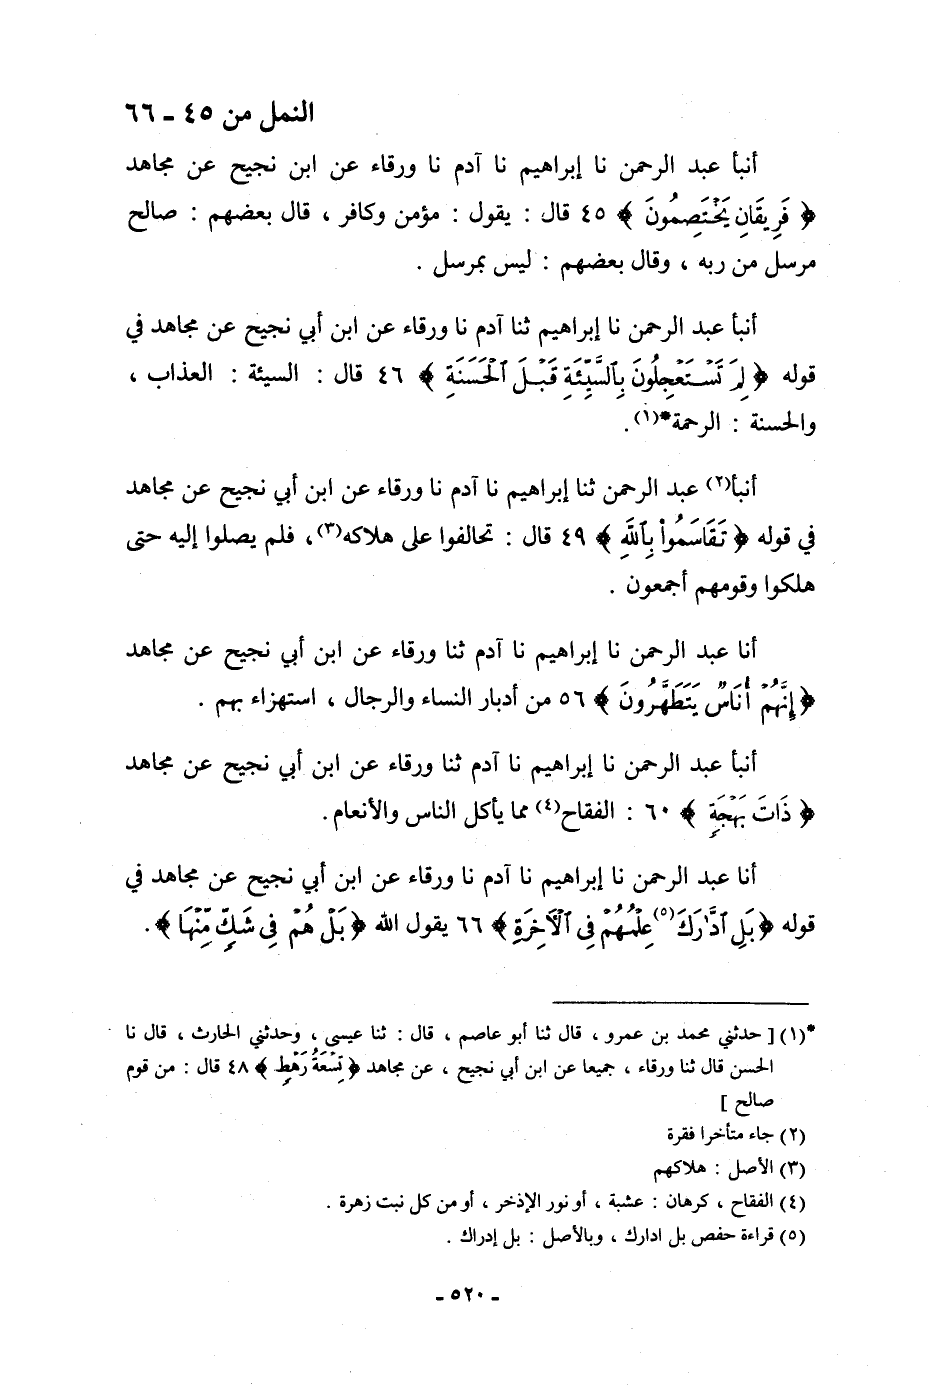 النمل من ٤٥ ـ ٦٦
أنبأ عبد الرحمن نا إبراهيم نا آدم نا ورقاء عن ابن نجيح عن مجاهد
﴿ فَرِيقَانِ يَخْتَصِمُونَ ﴾ ٤٥ قال : يقول : مؤمن وكافر ، قال بعضهم : صالح
مرسل من ربه ، وقال بعضهم : ليس بمرسل .
أنبأ عبد الرحمن نا إبراهيم ثنا آدم نا ورقاء عن ابن أبي نجيح عن مجاهد في
قوله ﴿ لِمَ تَسْتَعْجِلُونَ بِٱلسَّيِّئَةِ قَبْلَ ٱلْحَسَنَةِ ﴾ ٤٦ قال : السيئة : العذاب ،
والحسنة : الرحمة*(١).
أنبأ(٢) عبد الرحمن ثنا إبراهيم نا آدم نا ورقاء عن ابن أبي نجيح عن مجاهد
في قوله ﴿ تَقَاسَمُواْ بِٱللَّهِ ﴾ ٤٩ قال : تحالفوا على هلاكه(٣)، فلم يصلوا إليه حتى
هلكوا وقومهم أجمعون .
أنا عبد الرحمن نا إبراهيم نا آدم ثنا ورقاء عن ابن أبي نجيح عن مجاهد
﴿ إِنَّهُمْ أُنَاسٌ يَتَطَهَّرُونَ ﴾ ٥٦ من أدبار النساء والرجال ، استهزاء بهم .
أنبأ عبد الرحمن نا إبراهيم نا آدم ثنا ورقاء عن ابن أبي نجيح عن مجاهد
﴿ ذَاتَ بَهْجَةٍ ﴾ ٦٠ : الفقاح(٤) مما يأكل الناس والأنعام.
أنا عبد الرحمن نا إبراهيم نا آدم نا ورقاء عن ابن أبي نجيح عن مجاهد في
قوله ﴿ بَلِ ٱدَّٰرَكَ(٥) عِلْمُهُمْ فِى ٱلْآخِرَةِ ﴾ ٦٦ يقول الله ﴿ بَلْ هُمْ فِى شَكٍّ مِّنْهَا ﴾.
*(١) [ حدثني محمد بن عمرو ، قال ثنا أبو عاصم ، قال : ثنا عيسى ، وحدثني الحارث ، قال نا
الحسن قال ثنا ورقاء ، جميعا عن ابن أبي نجيح ، عن مجاهد ﴿ تِسْعَةُ رَهْطٍ ﴾ ٤٨ قال : من قوم
صالح ]
(٢) جاء متأخرا فقرة
(٣) الأصل : هلاكهم
(٤) الفقاح ، كرهان : عشبة ، أو نور الإذخر ، أو من كل نبت زهرة .
(٥) قراءة حفص بل ادارك ، وبالأصل : بل إدراك .
ـ ٥٢٠ ـ